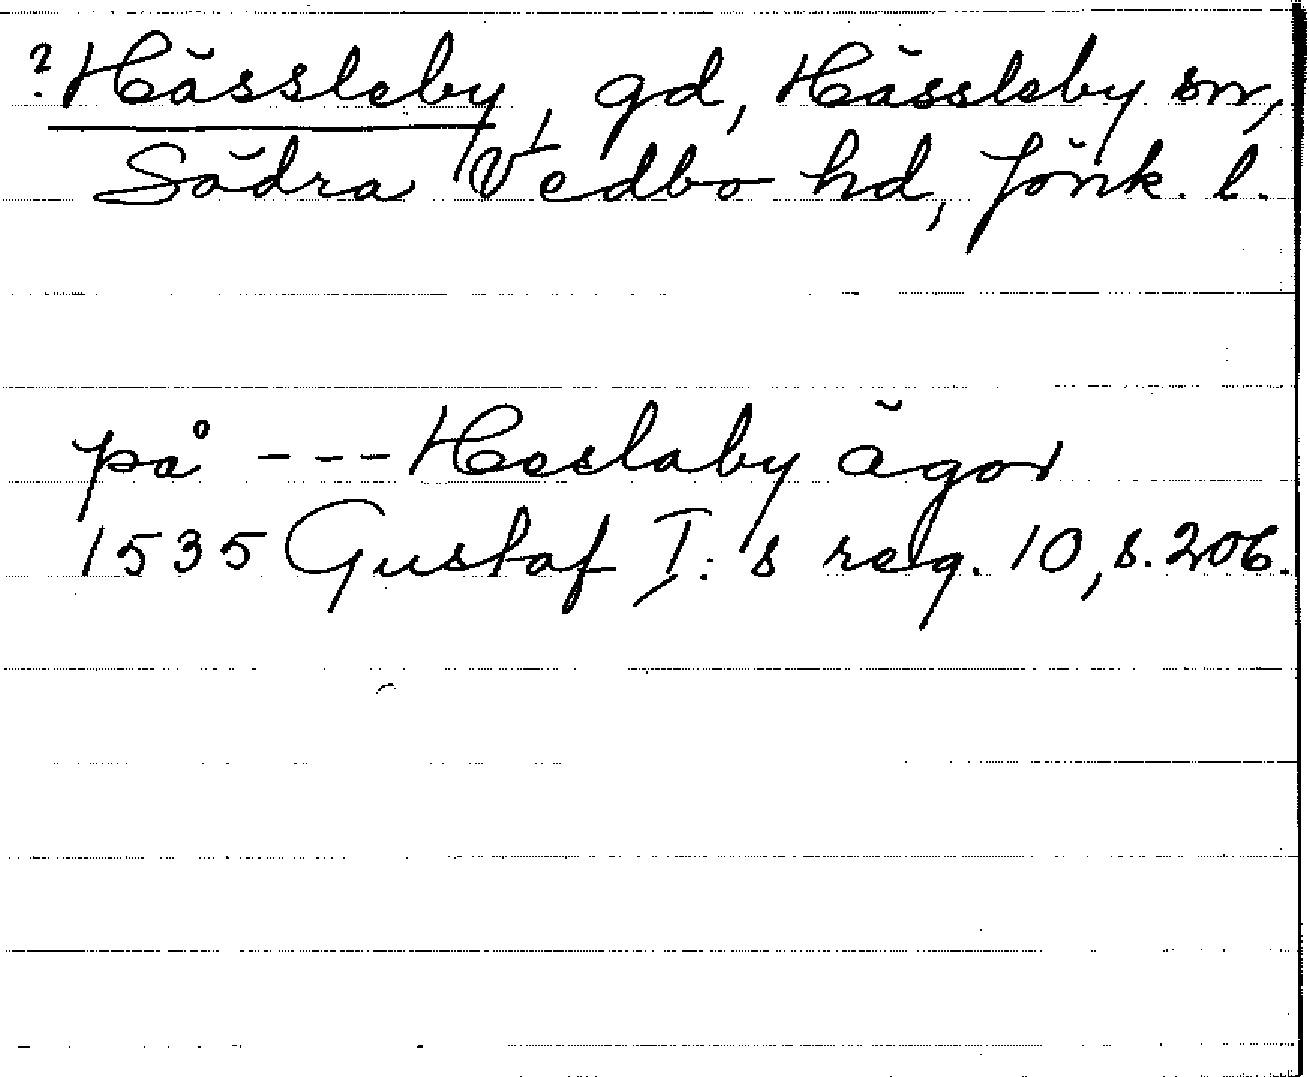 ? Hässleby, gd, Hässleby sn,
Södra Vedbo hd, Jönk. l.
på --- Heslaby ägor
1535 Gustaf I:s reg. 10, s. 206.